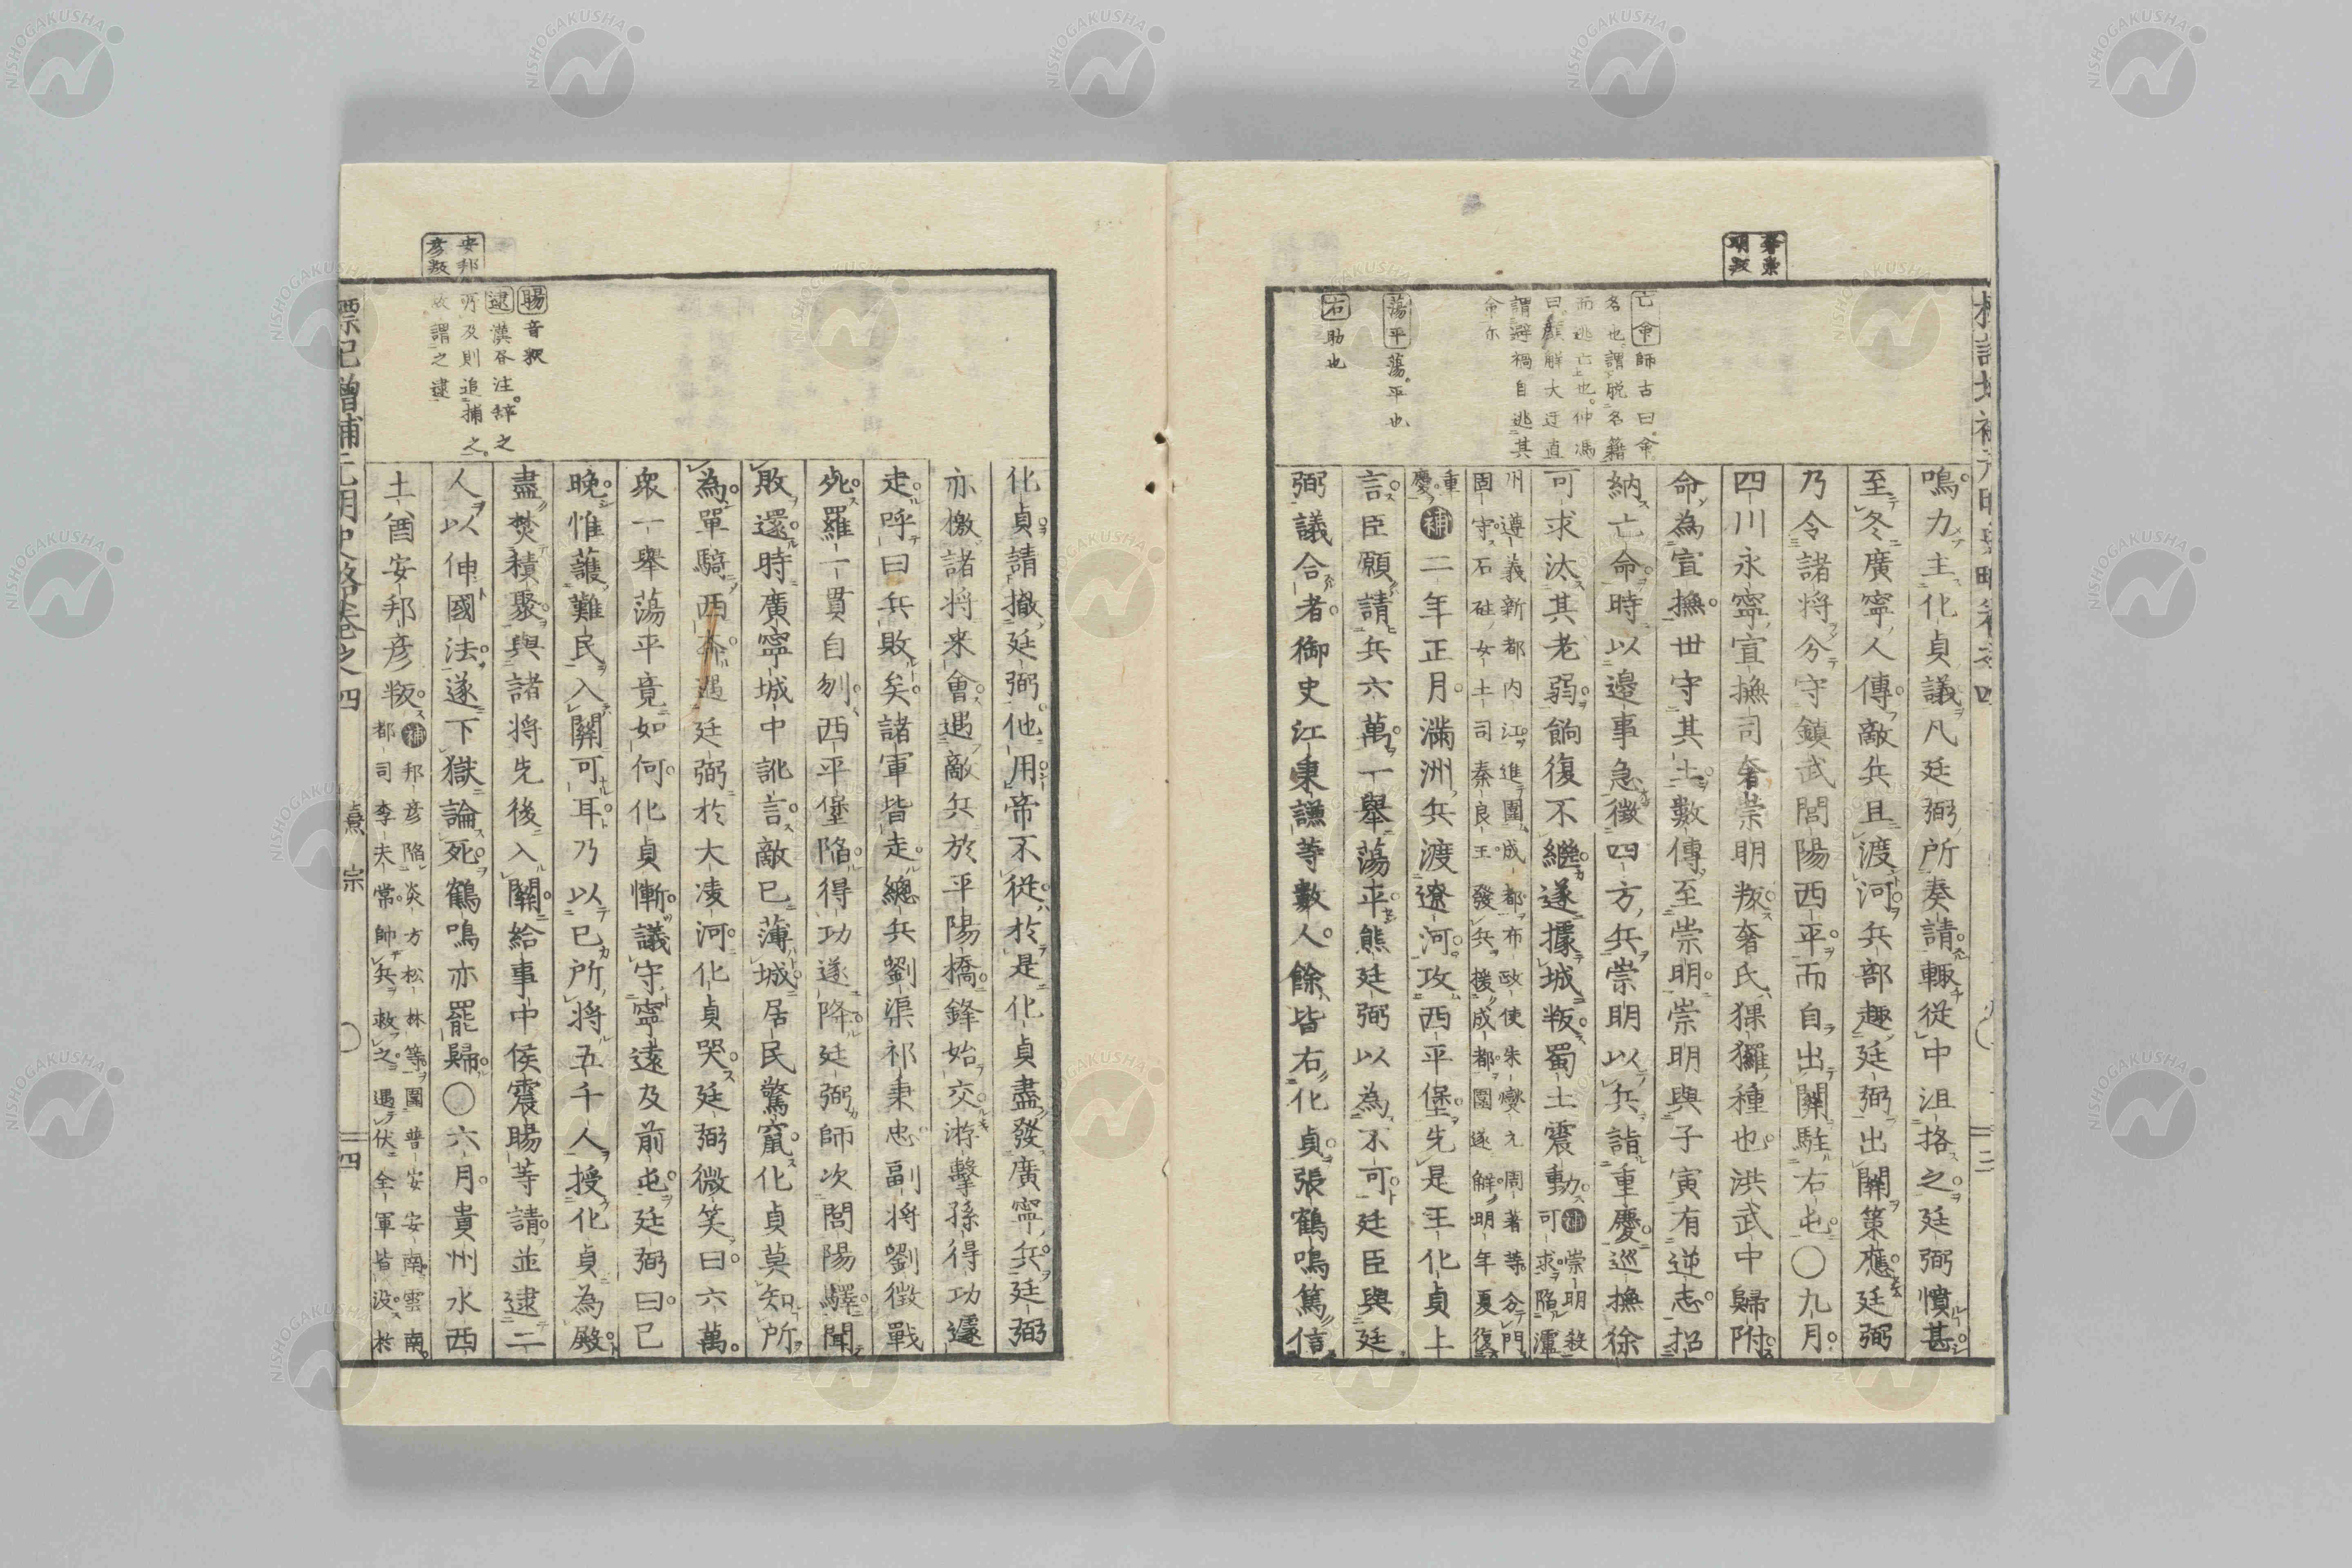 奢崇
明叛
亡命師古曰命
名也謂脱名籍
而逃亡也仲馮
曰顔解大迂直
謂避禍自逃其
命亦
蕩平蕩平也
右助也
鳴力主化貞議凡廷弼所奏請輙從中沮挌之廷弼憤甚
至冬廣寧人傳敵兵且渡河兵部趣廷弼出關策應廷弼
乃令諸将分守鎮武閭陽西平而自出關駐右屯〇九月
四川永寧宣撫司奢崇明叛奢氏猓玀種也洪武中歸附
命為宣撫世守其土數傳至崇明崇明與子寅有逆志招
納亡命時以邊事急徴四方兵崇明以兵詣重慶巡撫徐
可求汰其老弱餉復不繼遂據城叛蜀土震動補崇明殺
可求陷瀘
州遵義新都内江進圍成都布政使朱燮元周著等分門
固守石砫女土司秦良玉發兵援成都圍遂解明年夏復
重
慶補二年正月滿洲兵渡遼河攻西平堡先是王化貞上
言臣願請兵六萬一舉蕩平熊廷弼以為不可廷臣與廷
弼議合者御史江秉謙等數人餘皆右化貞張鶴鳴篤信
化貞請撤廷弼他用帝不從於是化貞盡發廣寧兵廷弼
亦檄諸将来會遇敵兵於平陽橋鋒始交游擊孫得功遽
走呼曰兵敗矣諸軍皆走總兵劉渠祁秉忠副将劉徴戰
死羅一貫自刎西平堡陷得功遂降廷弼師次閭陽驛聞
敗還時廣寧城中訛言敵已薄城居民驚竄化貞莫知所
為單騎西奔遇廷弼於大凌河化貞哭廷弼微笑曰六萬
衆一舉蕩平竟如何化貞慚議守寧遠及前屯廷弼曰已
晚惟護難民入關可耳乃以己所将五千人授化貞為殿
盡焚積聚與諸将先後入關給事中侯震暘等請並逮二
人以伸國法遂下獄論死鶴鳴亦罷歸〇六月貴州水西
土酋安邦彦叛補邦彦陷炎方松林等圍普安安南雲南
都司李天常帥兵救之遇伏全軍皆没於
安邦
彦叛
暘音釈
逮漢昏注辞之
所及則追捕之
故謂之逮
標記増補元明史略巻之四
熹宗
〇
三四